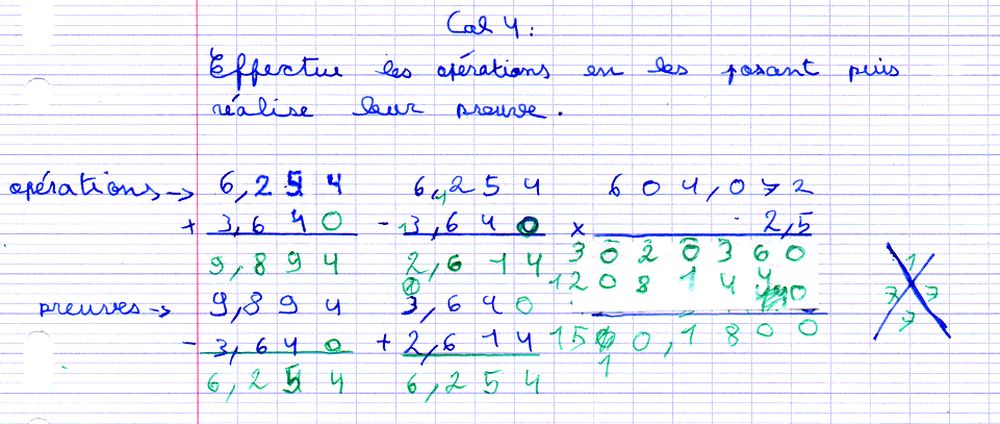 Cal 4 :
Effectue les opérations en les posant puis
réalise leur preuve.
opérations → 6,254 6,254 604,072
+ 3,640 - 3,640 x 2,5
9,894 2,614 3020360
1208144 0
preuves → 9,894 3,640
- 3,640 + 2,614 15 0,1800
6,254 6,254 1
1
7 7
7